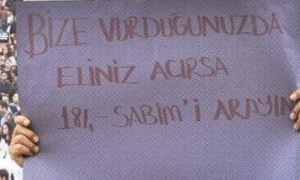 BİZE VURDUĞUNUZDA
ELİNİZ ACIRSA
184,-SABİM'İ ARAYIN